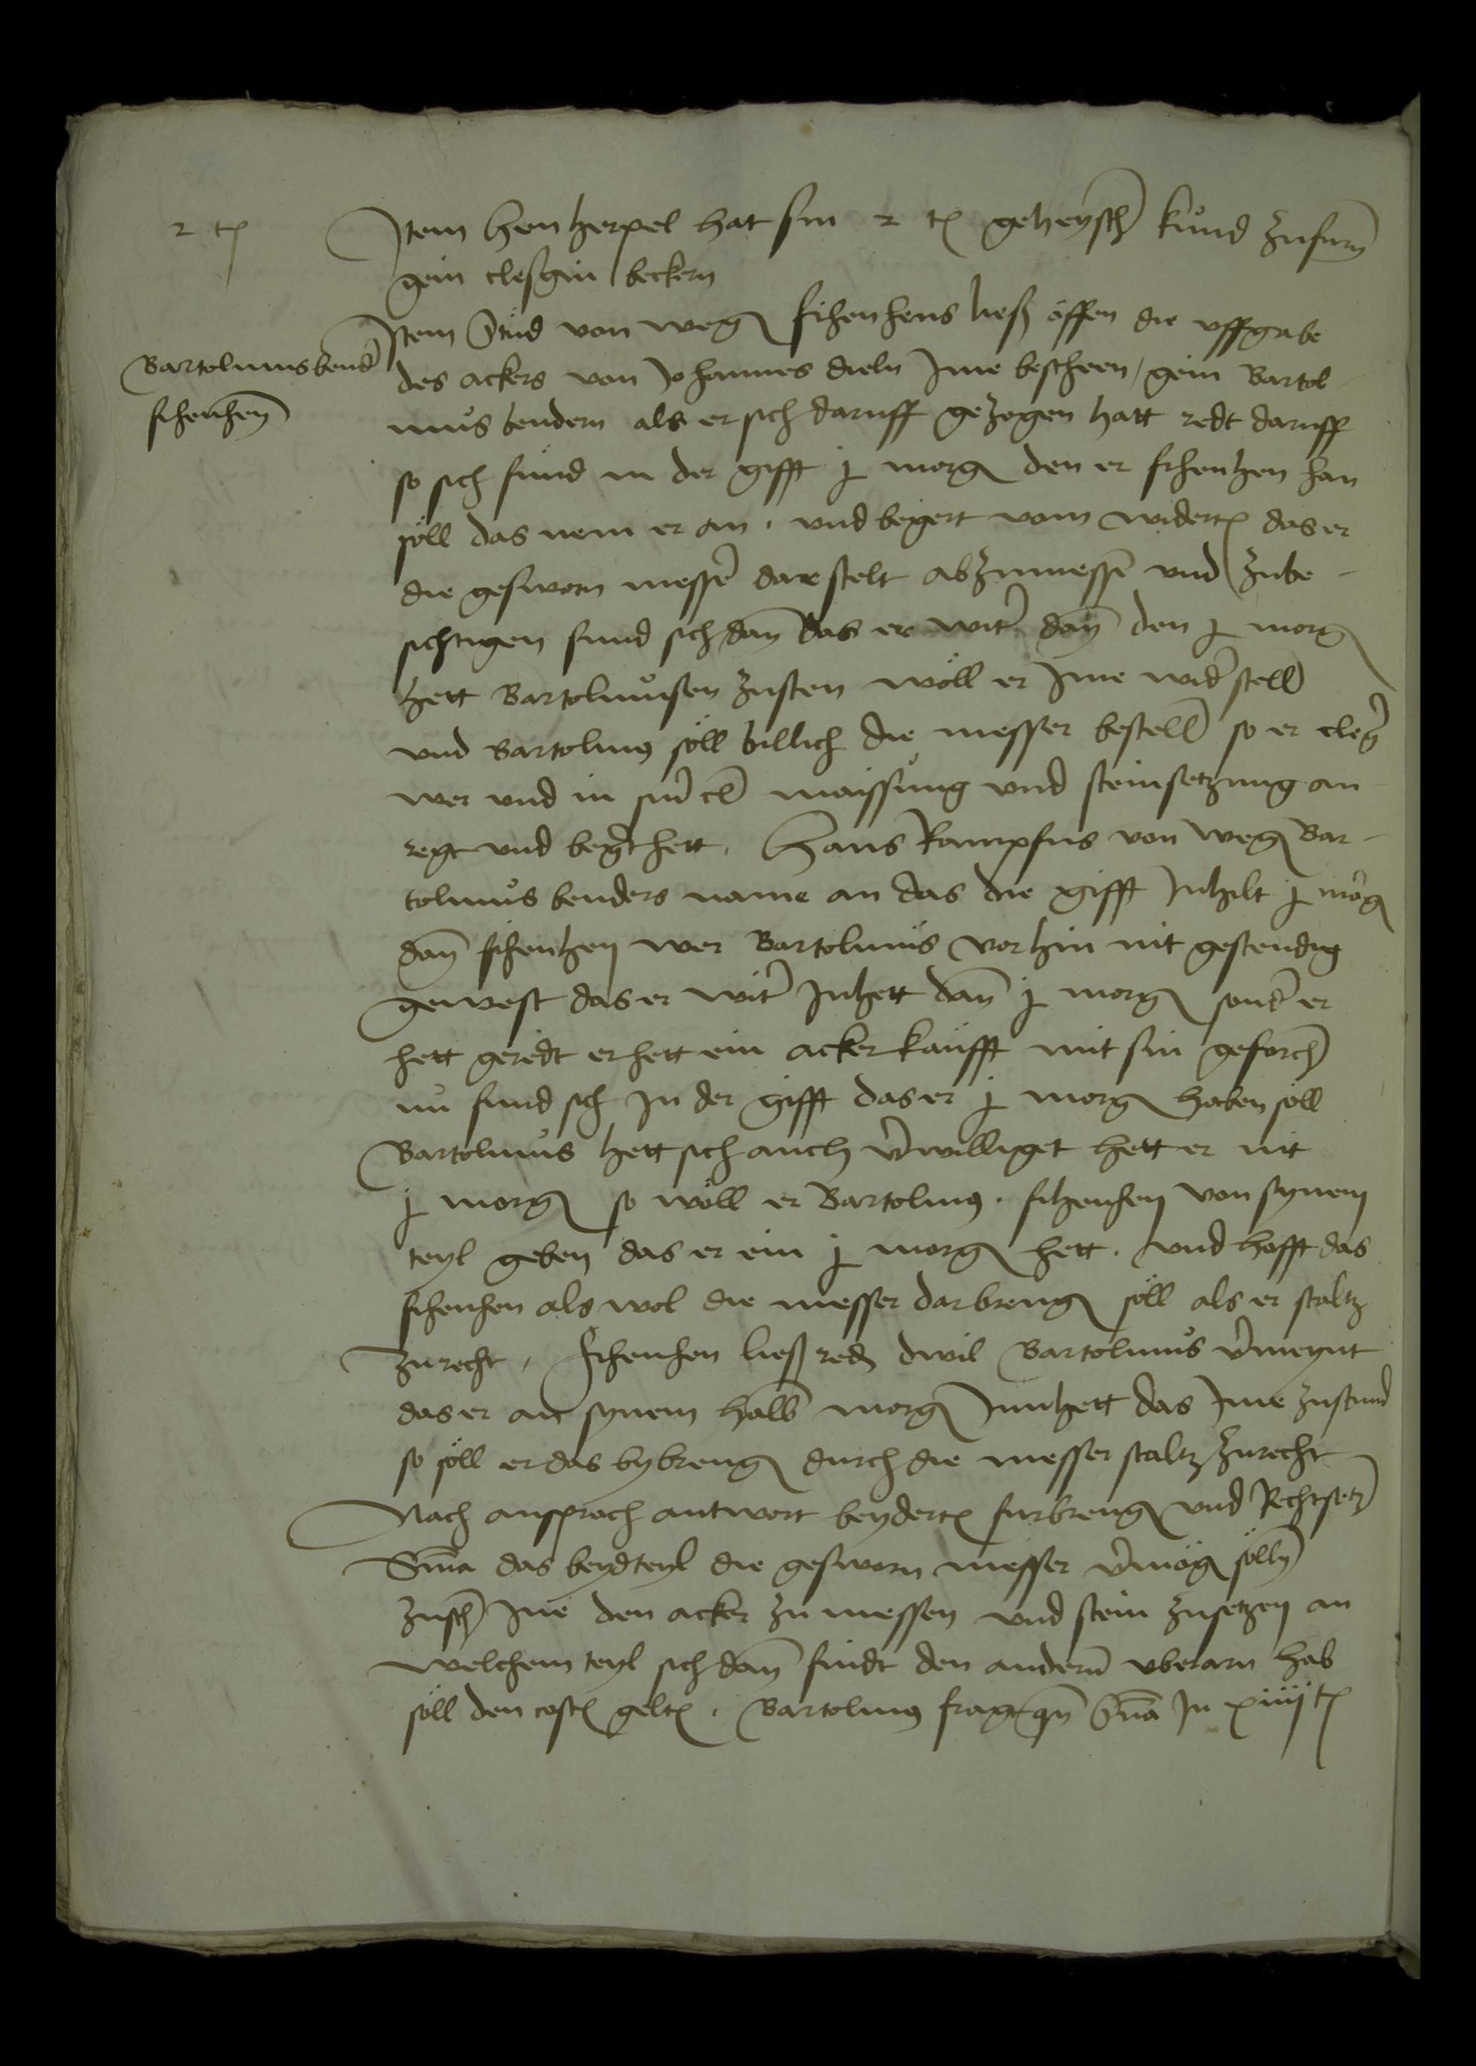 2 t
Item Henherpel hat sin 2 t geheysch kund zufurn
gein cleßgin beckern
Bartolmusbend
fihenhen
Item Stud von weg fihenhens ließ öffen die uffgabe
des ackers von Johannes dieln Jme bescheen / gein Bartol-
mus bendern als er sich daruff gezogen hatt redt daruff
so sich fund in der gifft j morg den er fihenhen han
söll das nem er an . und begert vom widert das er
die gesworn messer darstelt abzumessen und zube-
sichtigen fund sich dan das er wit dan den j morg
hett Bartolmusen zusten wöll er Jme widstell
und Bartolmus söll billich die messer bestell so er cleg
wer und in siner cl maissung und steinsetzung an
regt und begert hett . Hans Rampfus von weg Bar-
tolmus benders name an das die gifft Jnhilt j morg
dan fihenhen wer Bartolmus vorhin nit gestendig
gewest das er wit Jnhett dan j morg sond er
hett geredt er hett ein acker kaufft mit sin geforch
nu fund sich Jn der gifft das er j morg haben söll
Bartolmus hett sich auch vwilliget hett er nit
j morg so wöll er Bartolmus . fihenhen von synem
teyl geben das er ein j morg hett . und hofft das
fihenhen als wol die messer darbreng söll als er staltz
zu recht . fihenhen ließ red dwil Bartolmus vmeynt
das er an synem halb morg Jnnhett das Jme zustund
so söll er das bybreng durch die messer staltz zurecht
Nach ansproch antwort beydert furbreng und Rechtsetz
Sma das beydteyl die gesworn messer vmög solln
zusch Jne den acker zu messen und stein zusetzen an
welchem teyl sich dan findt den andern uberarn hab
söll den cost gelt . Bartolmus fragt qn Sma Jn xiiij t